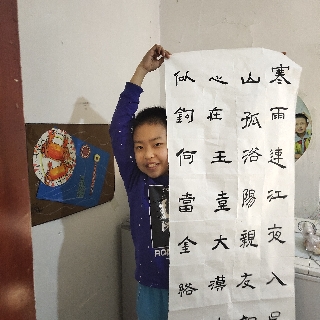 寒雨連江夜入吳
山孤洛陽親友如
心在玉壺大漠
似鉤何當金絡